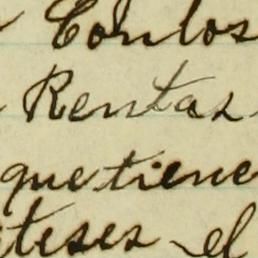 Conlos
Rentas
que tiene
teses el